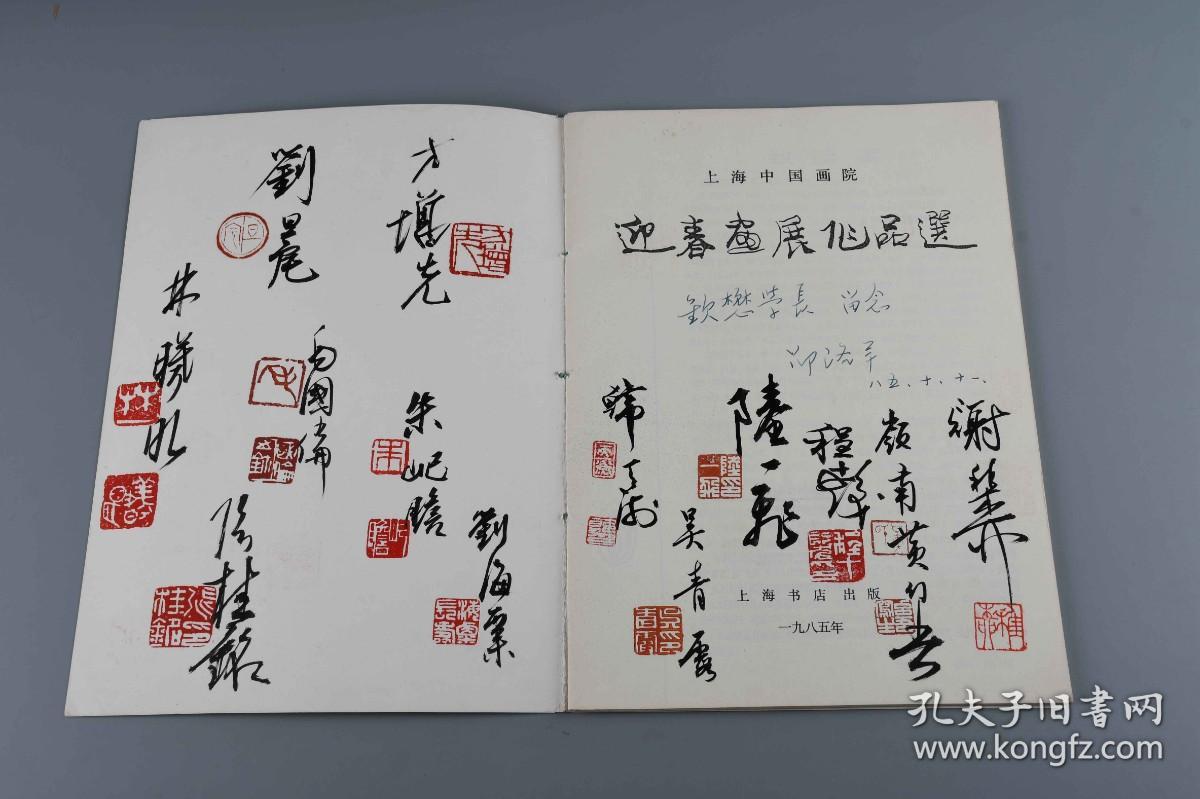 方增先
劉旦宅
林曦明
毛國倫
朱屺瞻
張桂銘
劉海粟
上海中国画院
迎春畫展作品選
欽懋学長 留念
邵洛羊
八五、十、十一、
謝稚柳
嶺南黄幻吾
程十髮
陸一飛
吴青霞
韓天衡
上海书店出版
一九八五年
孔夫子旧书网
www.kongfz.com